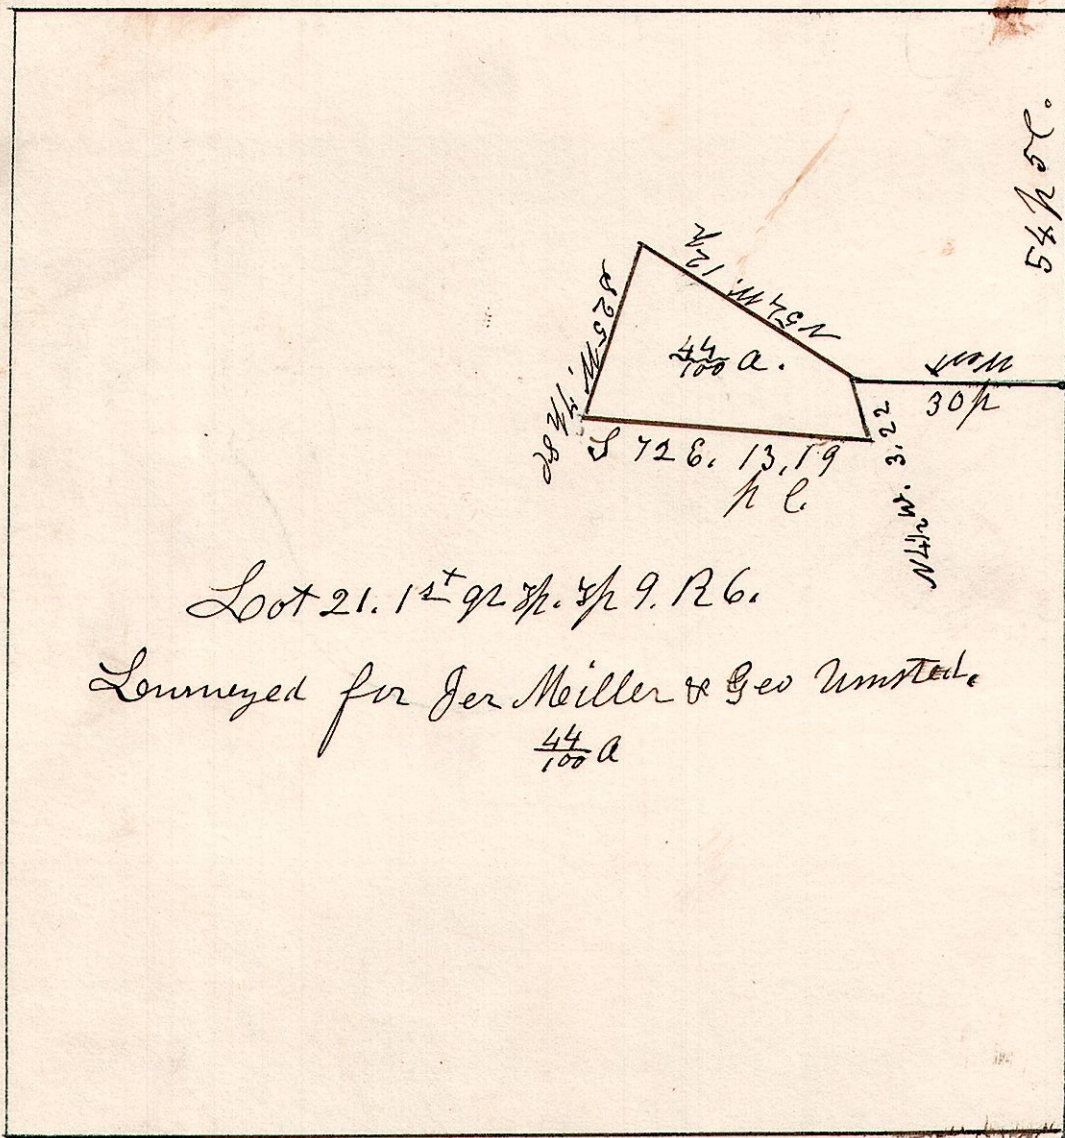 54 p
N 54 W. 12
S 25 W. 7
44/100 a.
West
30 p
S 72 E. 13,19
p l.
3.22
Lot 21. 1st qr Tp. Tp 9. R 6.
Surveyed for Jer Miller & Geo Umsted.
44/100 a